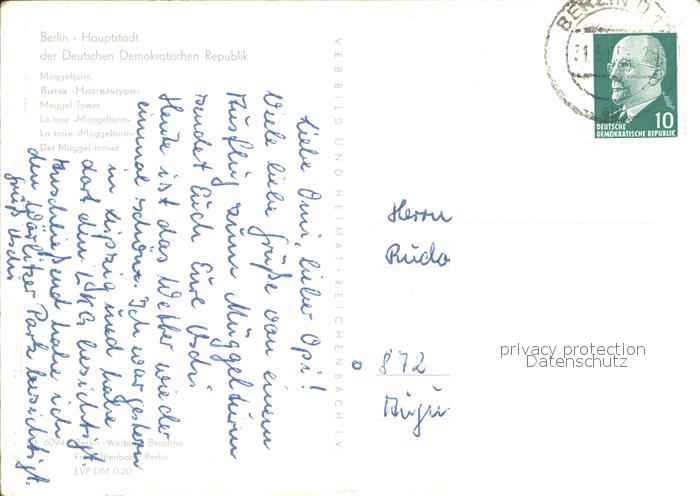 Berlin - Hauptstadt
der Deutschen Demokratischen Republik
Müggelturm
Вытка «Мюггельтурм»
Müggel Tower
La tour «Müggelturm»
La torre «Müggelturm»
Det Müggel-tornet
Liebe Omi, lieber Opi!
Viele liebe Grüße von einem
Ausflug zum Müggelturm
sendet Euch Eure Uschi
Heute ist das Wetter wieder
einmal schön. Ich war gestern
in Leipzig und habe
dort den besichtigt.
Anschließend habe ich
den Wörlitzer Park besichtigt.
Gruß Uschi
VEB BILD UND HEIMAT · REICHENBACH I.V.
6094 Berlin-Werbung Berolina
Foto: Ittenbach, Berlin
EVP DM 0,20
BERLIN
DEUTSCHE
DEMOKRATISCHE REPUBLIK
10
Herrn
Rudo
872
privacy protection
Datenschutz